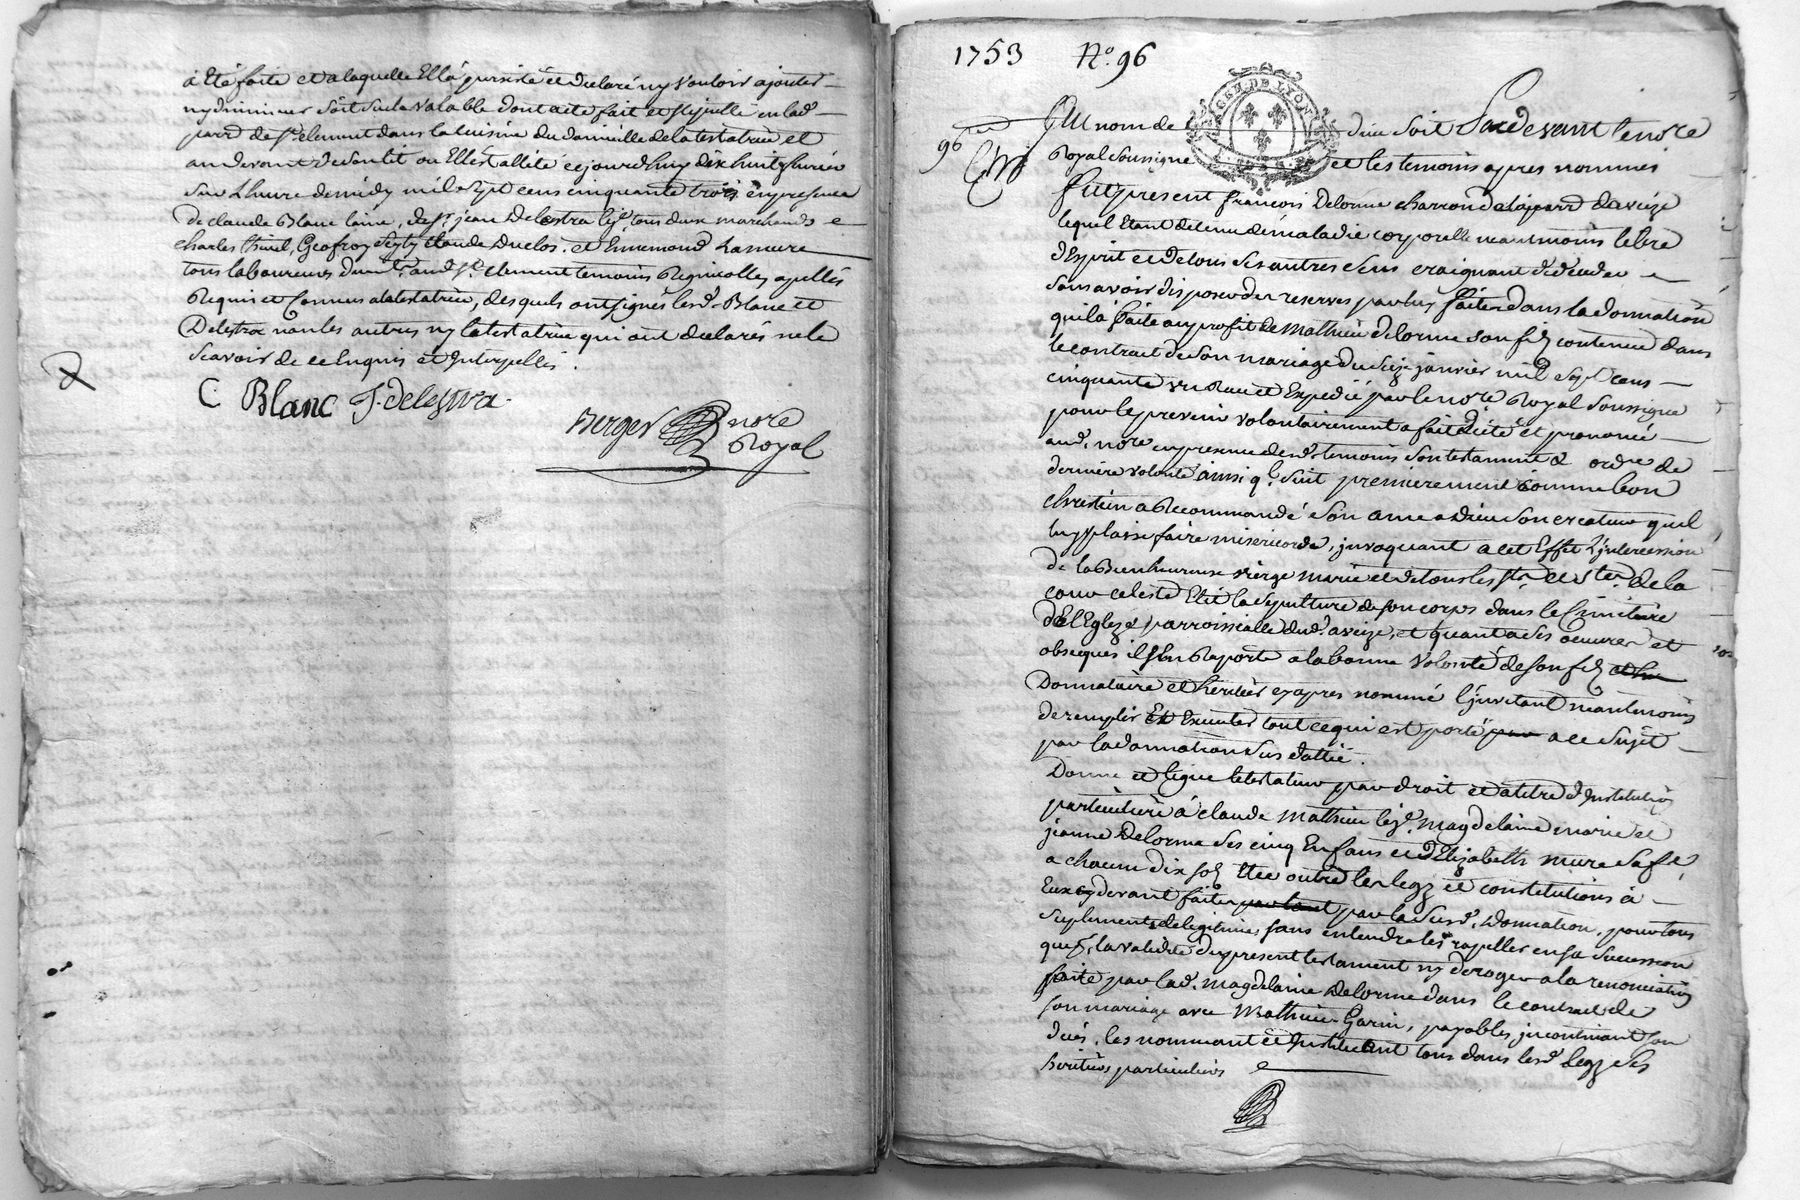 à Eté faite et a laquelle Ella persisté et declaré ny vouloir ajouter
ny diminuer soit seule valable dont acte fait et stipullé en lad.
parr. de St. clement dans la cuisine du domicille de la testatrice et
au devant de son lit ou Elle est allitée cejourd'huy dix huit fevrier
sur l'heure de midy mil sept cens cinquante trois en presence
de claude Blanc laine, de Sr. jean Delestra tous deux marchands
charles Geofroy claude Duclos, et Ennemond Lamure
tous laboureurs dud. St. clement temoins Reginicolles apellés
Requis et Connus a la testatrice, desquels ont signé lesd. Blanc et
Delestra non les autres ny la testatrice qui ont declarés ne le
scavoir de ce Enquis et Interpellés.
C Blanc J. delestra.
Berger nore
Royal
1753 No. 96
96
GEN DE LYON
Au nom de dieu soit Pardevant le nore
Royal soussigné et les temoins apres nommés
fut present francois Delorme charron de la parr. daveize
lequel Etant detenu de maladie corporelle neantmoins libre
d'Esprit et de tous ses autres sens craignant de deceder
sans avoir disposer des reserves par luy faites dans la donnation
quil a faite au profit de mathieu delorme son fils contenue dans
le contrat de son mariage du seize janvier mil sept cens
cinquante un Recu et Expedié par le nore. Royal soussigné
pour le prevenir volontairement a fait dicté et prononcé
aud. nore en presence desd. temoins son testament & ordre de
derniere volonté ainsi q. suit premierement comme bon
chretien a Recommandé son ame a Dieu son createur quil
luy plaise faire misericorde, invoquant a cet Effet l'jntercession
de la Bienheureuse vierge marie et de tous les Sts. et Stes. de la
cour celeste Elit la sepulture de son corps dans le Cimetiere
de l'Eglise parroissialle dud. aveize, et quant a ses oeuvres et
obseques il s'En Raporte a la bonne volonté de son fils
Donnataire et heritier cy apres nommé l'jnvitant neantmoins
de remplir Et Executer tout ce qui est porté par a ce sujet
par la donnation sus dattée.
Donne et legue le testateur par droit et a titre d'Institution
particuliere à claude mathieu leje. magdelaine marie et
jeanne Delorme ses cinq Enfans et d'Elizabeth mure sa fe,
a chacun dix sols outre les legz et constitutions à
Eux cy devant faites par la susd. donnation, pour tous
suplements de legitimes sans entendre les rapeller en sa succession
que pr. la validité du present testament ny deroger a la renonciation
faite par lad. magdelaine Delorme dans le contrat de
son mariage avec Mathieu Garin, payables jncontinant son
decés, les nommant et Instituant tous dans lesd. legz ses
heritiers particuliers